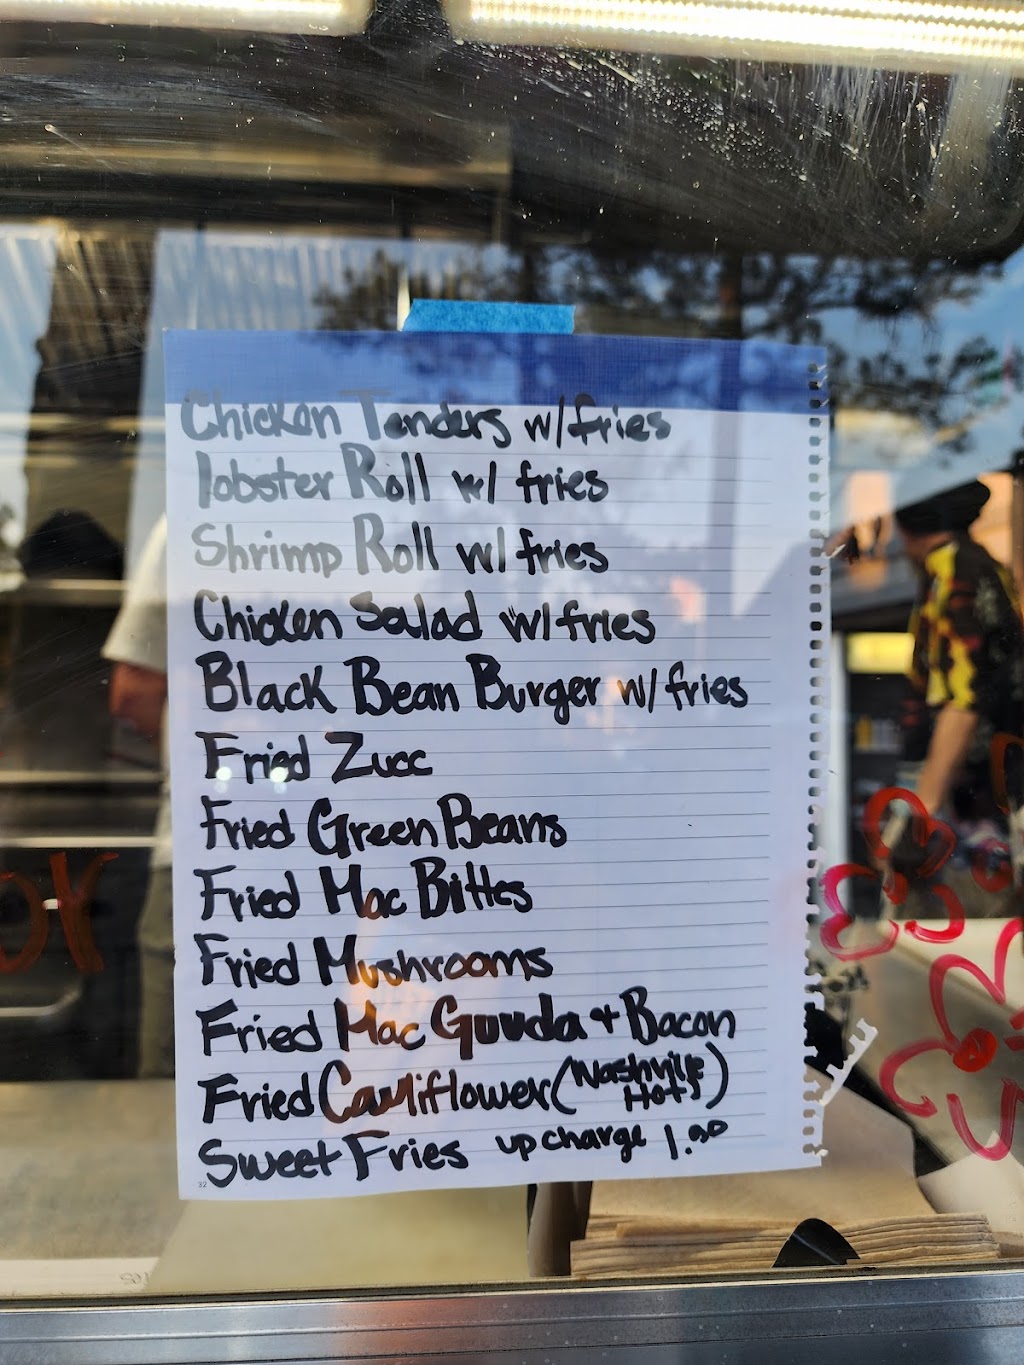 Chicken Tenders w/fries
lobster Roll w/ fries
Shrimp Roll w/ fries
Chicken Salad w/fries
Black Bean Burger w/ fries
Fried Zucc
Fried Green Beans
Fried Mac Bittes
Fried Mushrooms
Fried Mac Gouda + Bacon
Fried Cauliflower (Nashville Hot)
Sweet Fries upcharge 1.00
32